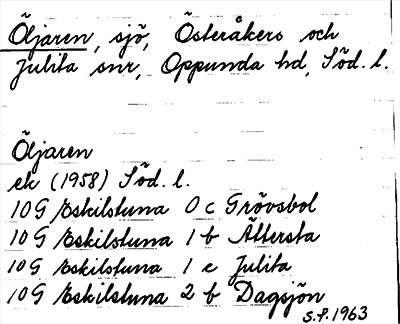 Öljaren, sjö, Österåkers och
Julita snr, Oppunda hd, Söd. l.
Öljaren
ek (1958) Söd. l.
10G Eskilstuna 0c Grövsbol
10G Eskilstuna 1 b Ättersta
10G Eskilstuna 1 c Julita
10G Eskilstuna 2 b Dagsjön
S.P. 1963